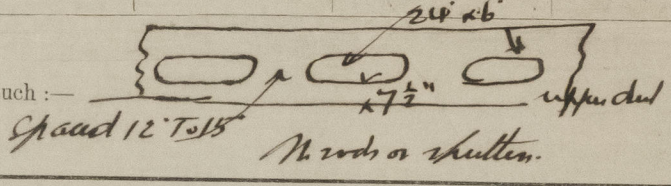 24" x 6"
uch :—
x 7 1/2"
upper deck
Spaced 12" To 15"
No rods or shutters.